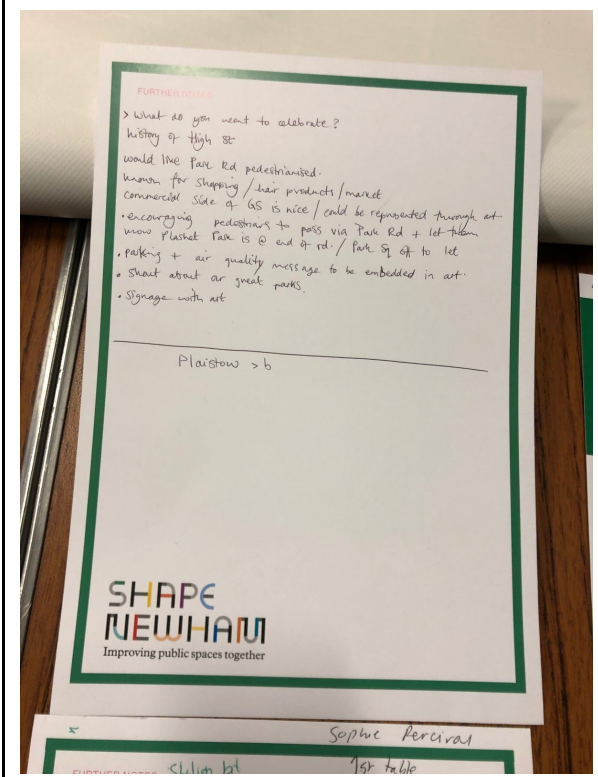 FURTHER NOTES
> What do you want to celebrate?
history of High St
would like Park Rd pedestrianised.
known for shopping / hair products / market
commercial side of GS is nice / could be represented through art
• encouraging pedestrians to pass via Park Rd + let them
know Plashet Park is @ end of rd. / Park Sq off to let
• parking + air quality message to be embedded in art.
• Shout about our great parks.
• Signage with art
Plaistow > b
SHAPE
NEWHAM
Improving public spaces together
Sophie Percival
FURTHER NOTES
1st table